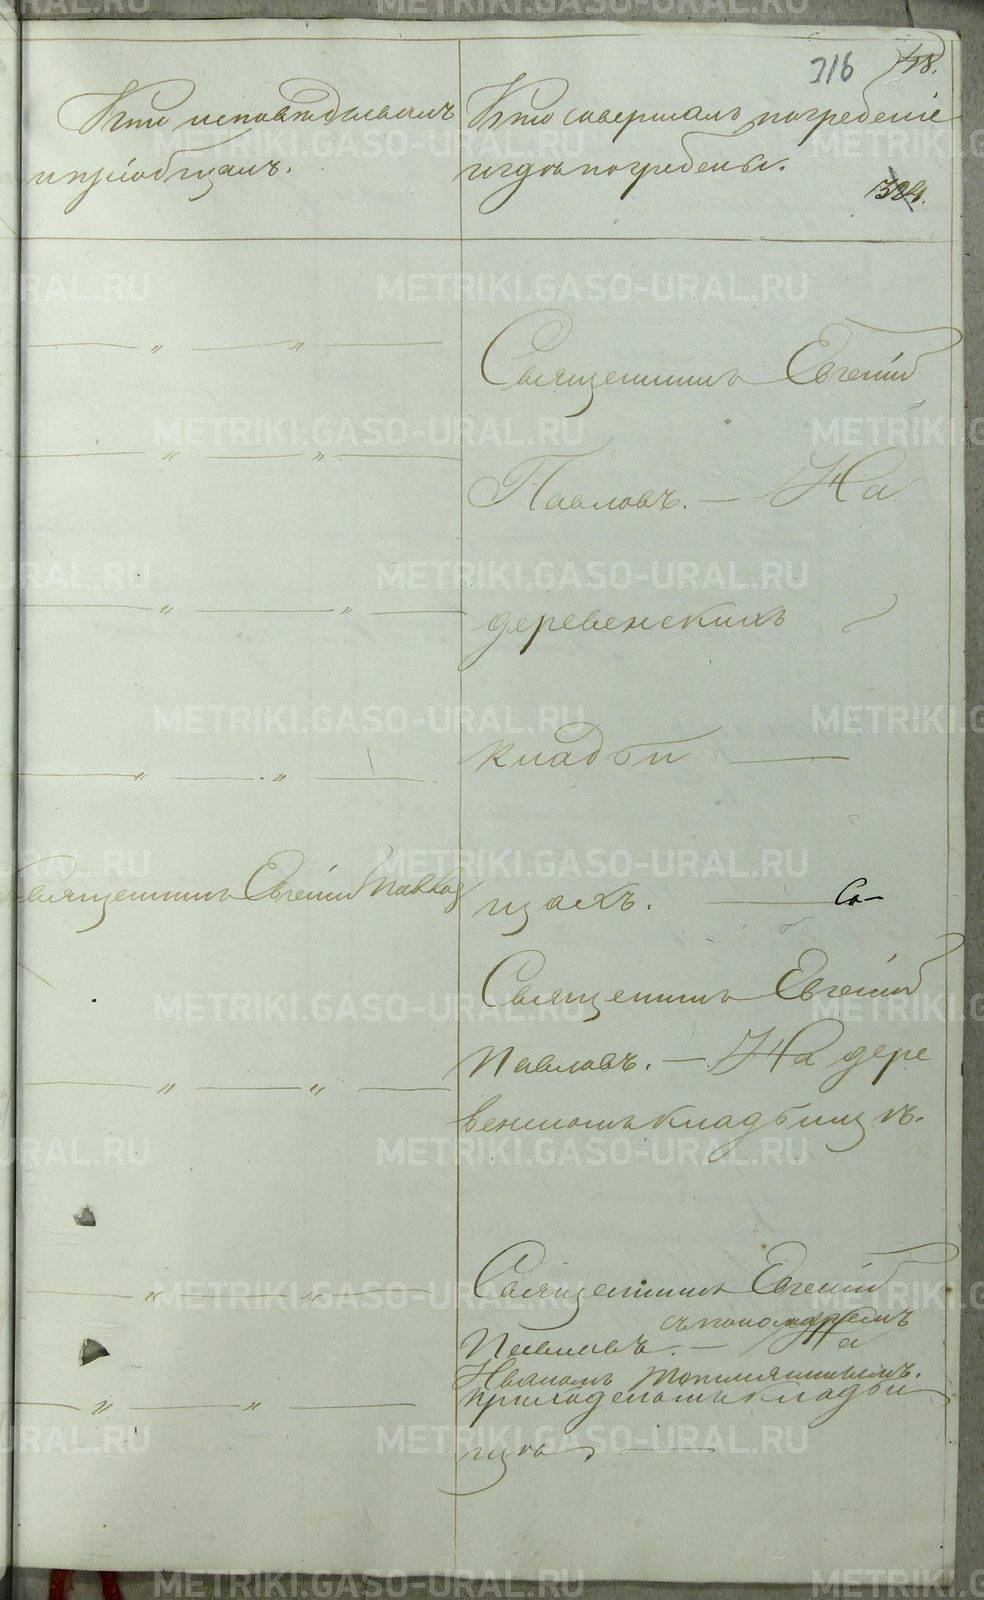 316
118.
Кто исповѣдывалъ
и пріобщалъ.
Кто совершалъ погребеніе
и гдѣ погребены.
324.
Священникъ Евгеній
Павловъ. — На
деревенскихъ
кладби
щахъ. — Со-
Священникъ Евгеній Павлов
Священникъ Евгеній
Павловъ. — На дере
венскомъ кладбищѣ.
Священникъ Евгеній
съ пономаремъ
Павловъ. — На
Иваномъ
приходскомъ кладби
щѣ
METRIKI.GASO-URAL.RU